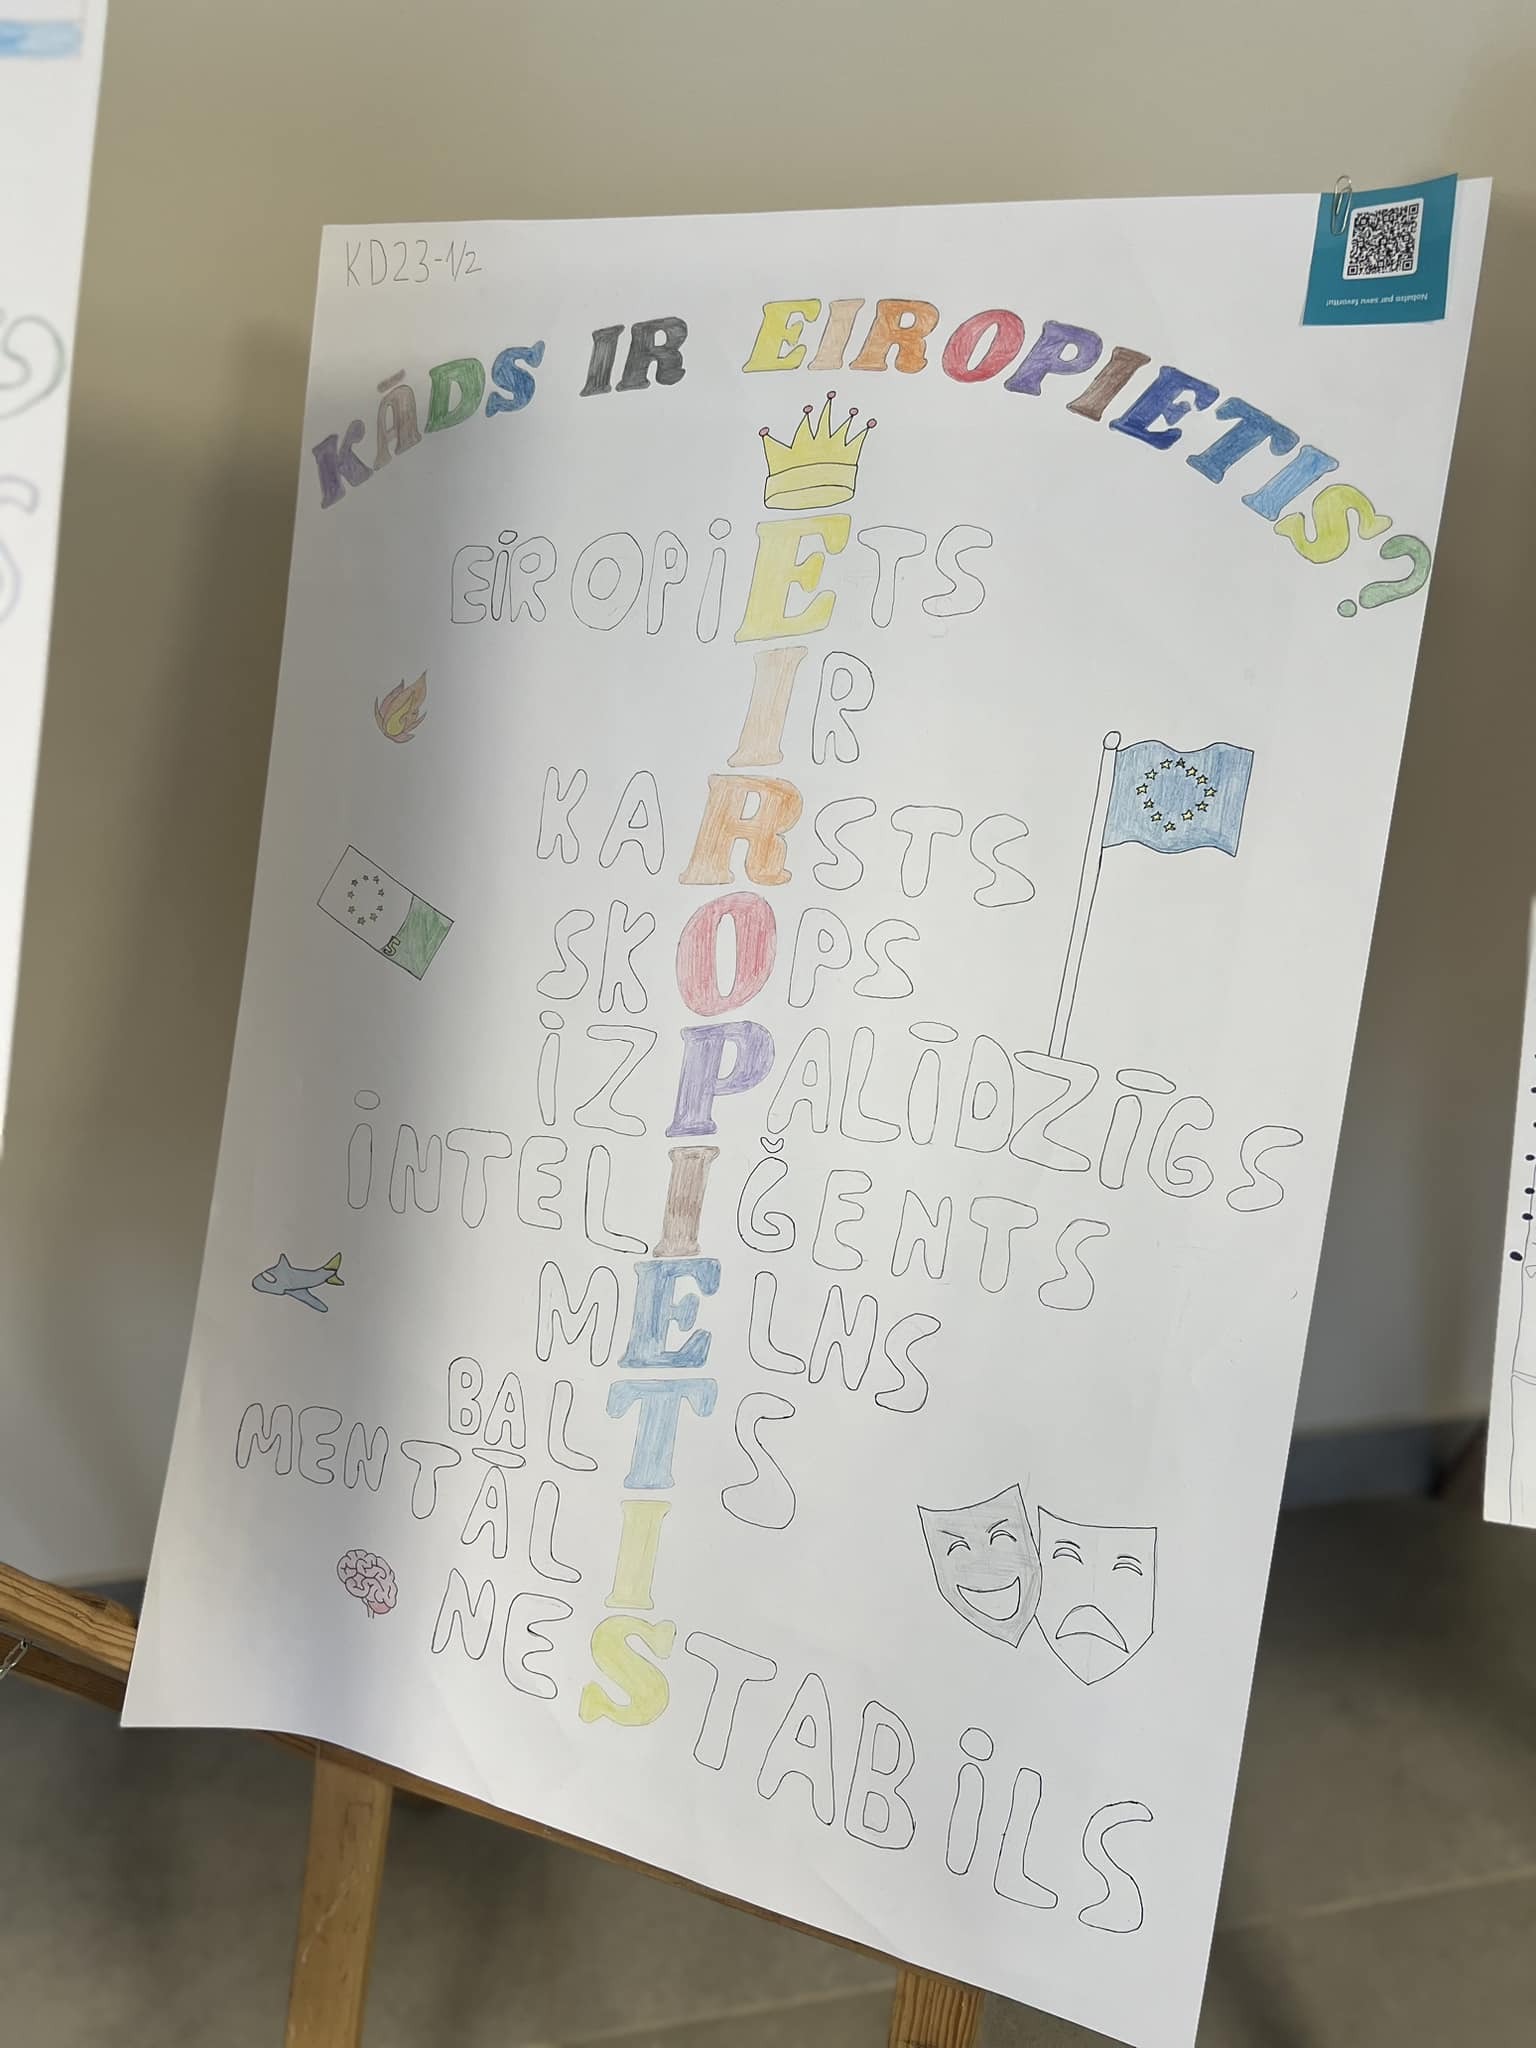 KD23-1/2
Nobalso par savu favorītu!
KĀDS IR EIROPIETIS?
EIROPiETS
IR
KARSTS
SKOPS
iZPALĪDZĪGS
iNTELIĞENTS
MELNS
BALTS
MENTĀLI
NESTABiLS
5